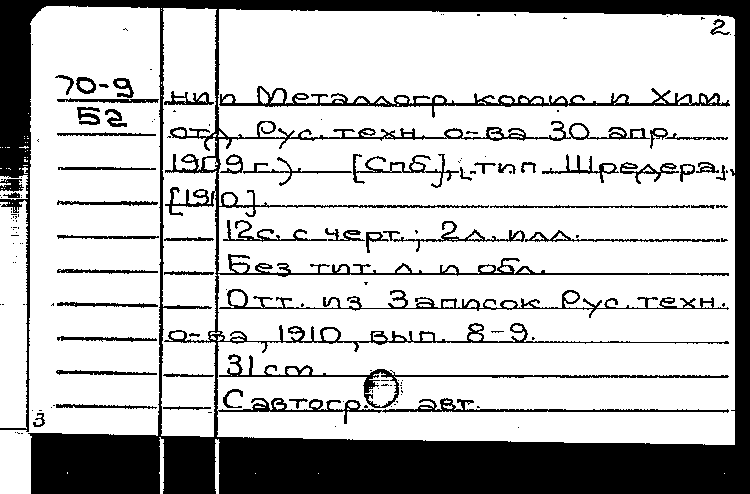 2
70-9
52
нии Металлогр. комис. и Хим.
отд. Рус. техн. о-ва 30 апр.
1909 г.). [Спб], тип. Шредера,
[1910].
12 с. с черт.; 2 л. илл.
Без тит. л. и обл.
Отт. из Записок Рус. техн.
о-ва, 1910, вып. 8-9.
31 см.
С автогр. авт.
3